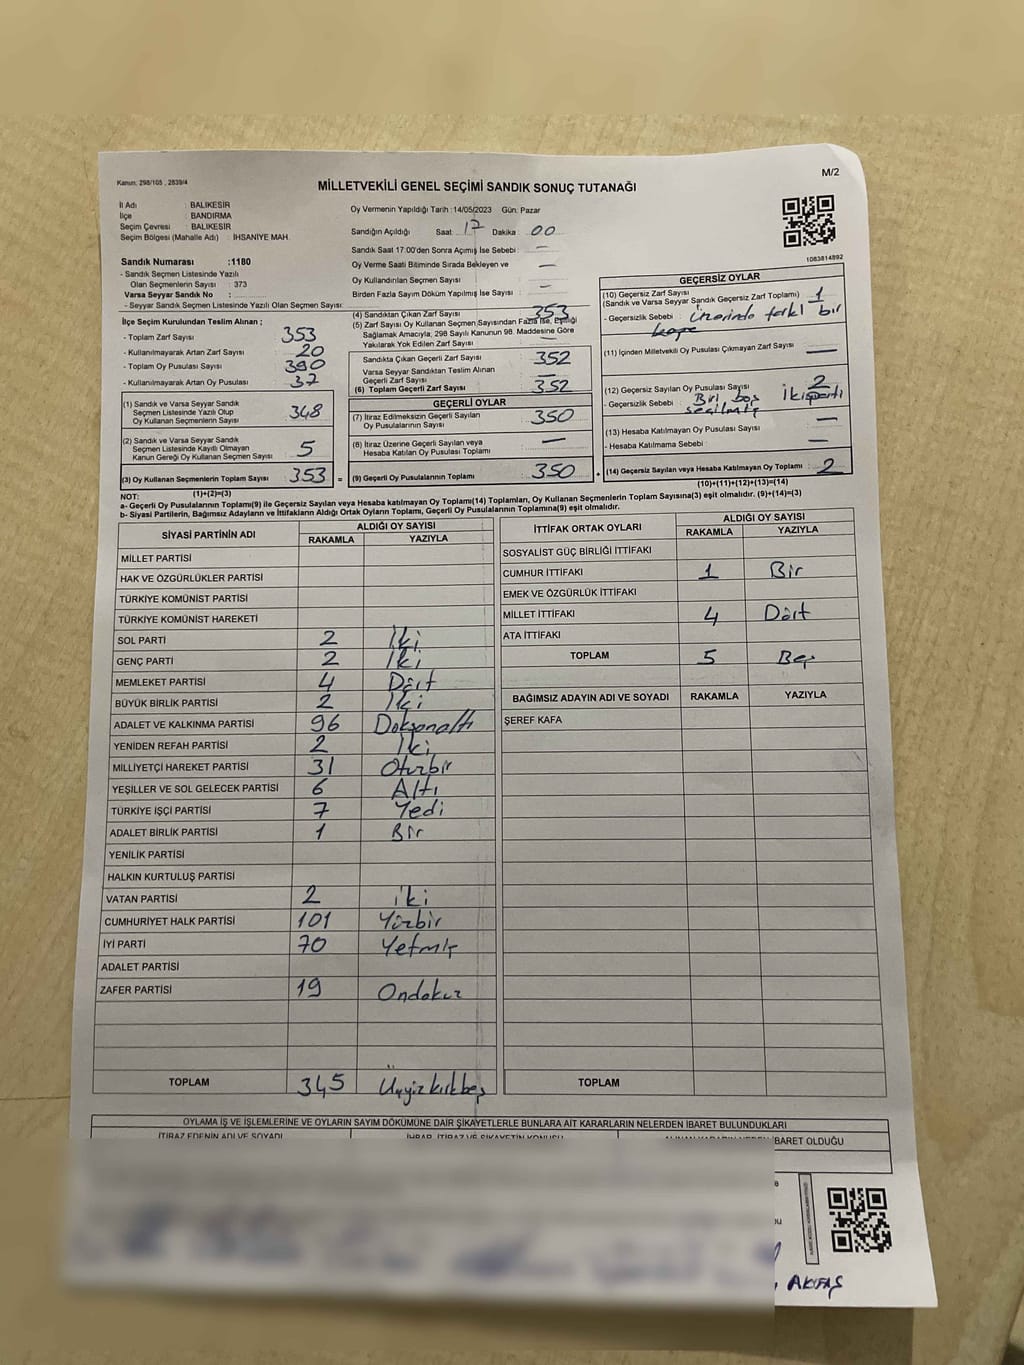 Kanun: 298/105 , 2839/4
M/2
MİLLETVEKİLİ GENEL SEÇİMİ SANDIK SONUÇ TUTANAĞI
İl Adı : BALIKESİR
İlçe : BANDIRMA
Seçim Çevresi : BALIKESİR
Seçim Bölgesi (Mahalle Adı) : İHSANİYE MAH.
Sandık Numarası :1180
- Sandık Seçmen Listesinde Yazılı
Olan Seçmenlerin Sayısı : 373
Varsa Seyyar Sandık No :
- Seyyar Sandık Seçmen Listesinde Yazılı Olan Seçmen Sayısı:
Oy Vermenin Yapıldığı Tarih : 14/05/2023 Gün: Pazar
Sandığın Açıldığı Saat: 17 Dakika : 00
Sandık Saat 17:00'den Sonra Açımış İse Sebebi : —
Oy Verme Saati Bitiminde Sırada Bekleyen ve
Oy Kullandırılan Seçmen Sayısı —
Birden Fazla Sayım Döküm Yapılmış İse Sayısı : —
1083814892
İlçe Seçim Kurulundan Teslim Alınan ;
- Toplam Zarf Sayısı 353
- Kullanılmayarak Artan Zarf Sayısı 20
- Toplam Oy Pusulası Sayısı 390
- Kullanılmayarak Artan Oy Pusulası 37
(1) Sandık ve Varsa Seyyar Sandık
Seçmen Listesinde Yazılı Olup
Oy Kullanan Seçmenlerin Sayısı 348
(2) Sandık ve Varsa Seyyar Sandık
Seçmen Listesinde Kayıtlı Olmayan
Kanun Gereği Oy Kullanan Seçmen Sayısı 5
(3) Oy Kullanan Seçmenlerin Toplam Sayısı 353 =
(1)+(2)=(3)
(4) Sandıktan Çıkan Zarf Sayısı 353
(5) Zarf Sayısı Oy Kullanan Seçmen Sayısından Fazla İse, Eşitliği
Sağlamak Amacıyla; 298 Sayılı Kanunun 98. Maddesine Göre
Yakılarak Yok Edilen Zarf Sayısı —
Sandıkta Çıkan Geçerli Zarf Sayısı 352
Varsa Seyyar Sandıktan Teslim Alınan
Geçerli Zarf Sayısı —
(6) Toplam Geçerli Zarf Sayısı 352
GEÇERLİ OYLAR
(7) İtiraz Edilmeksizin Geçerli Sayılan
Oy Pusulalarının Sayısı: 350
(8) İtiraz Üzerine Geçerli Sayılan veya
Hesaba Katılan Oy Pusulası Toplamı —
(9) Geçerli Oy Pusulalarının Toplamı : 350 +
GEÇERSİZ OYLAR
(10) Geçersiz Zarf Sayısı 1
(Sandık ve Varsa Seyyar Sandık Geçersiz Zarf Toplamı)
- Geçersizlik Sebebi : Üzerinde farklı bir
kaşe
(11) İçinden Milletvekili Oy Pusulası Çıkmayan Zarf Sayısı —
(12) Geçersiz Sayılan Oy Pusulası Sayısı 2
- Geçersizlik Sebebi : Biri boş İki parti
seçilmiş
(13) Hesaba Katılmayan Oy Pusulası Sayısı : —
- Hesaba Katılmama Sebebi : —
(14) Geçersiz Sayılan veya Hesaba Katılmayan Oy Toplamı : 2
(10)+(11)+(12)+(13)=(14)
NOT:
a- Geçerli Oy Pusulalarının Toplamı(9) ile Geçersiz Sayılan veya Hesaba katılmayan Oy Toplamı(14) Toplamları, Oy Kullanan Seçmenlerin Toplam Sayısına(3) eşit olmalıdır. (9)+(14)=(3)
b- Siyasi Partilerin, Bağımsız Adayların ve İttifakların Aldığı Ortak Oyların Toplamı, Geçerli Oy Pusulalarının Toplamına(9) eşit olmalıdır.
SİYASİ PARTİNİN ADI ALDIĞI OY SAYISI
RAKAMLA YAZIYLA
MİLLET PARTİSİ
HAK VE ÖZGÜRLÜKLER PARTİSİ
TÜRKİYE KOMÜNİST PARTİSİ
TÜRKİYE KOMÜNİST HAREKETİ
SOL PARTİ 2 İki
GENÇ PARTİ 2 İki
MEMLEKET PARTİSİ 4 Dört
BÜYÜK BİRLİK PARTİSİ 2 İki
ADALET VE KALKINMA PARTİSİ 96 Doksanaltı
YENİDEN REFAH PARTİSİ 2 İki
MİLLİYETÇİ HAREKET PARTİSİ 31 Otuzbir
YEŞİLLER VE SOL GELECEK PARTİSİ 6 Altı
TÜRKİYE İŞÇİ PARTİSİ 7 Yedi
ADALET BİRLİK PARTİSİ 1 Bir
YENİLİK PARTİSİ
HALKIN KURTULUŞ PARTİSİ
VATAN PARTİSİ 2 iki
CUMHURİYET HALK PARTİSİ 101 Yüzbir
İYİ PARTİ 70 Yetmiş
ADALET PARTİSİ
ZAFER PARTİSİ 19 Ondokuz
TOPLAM 345 Üçyüzkırkbeş
İTTİFAK ORTAK OYLARI ALDIĞI OY SAYISI
RAKAMLA YAZIYLA
SOSYALİST GÜÇ BİRLİĞİ İTTİFAKI
CUMHUR İTTİFAKI 1 Bir
EMEK VE ÖZGÜRLÜK İTTİFAKI
MİLLET İTTİFAKI 4 Dört
ATA İTTİFAKI
TOPLAM 5 Beş
BAĞIMSIZ ADAYIN ADI VE SOYADI RAKAMLA YAZIYLA
ŞEREF KAFA
TOPLAM
OYLAMA İŞ VE İŞLEMLERİNE VE OYLARIN SAYIM DÖKÜMÜNE DAİR ŞİKAYETLERLE BUNLARA AİT KARARLARIN NELERDEN İBARET BULUNDUKLARI
İTİRAZ EDENİN ADI VE SOYADI İHBAR, İTİRAZ VE ŞİKAYETİN KONUSU ALINAN KARARIN NEDEN İBARET OLDUĞU
AKTAŞ